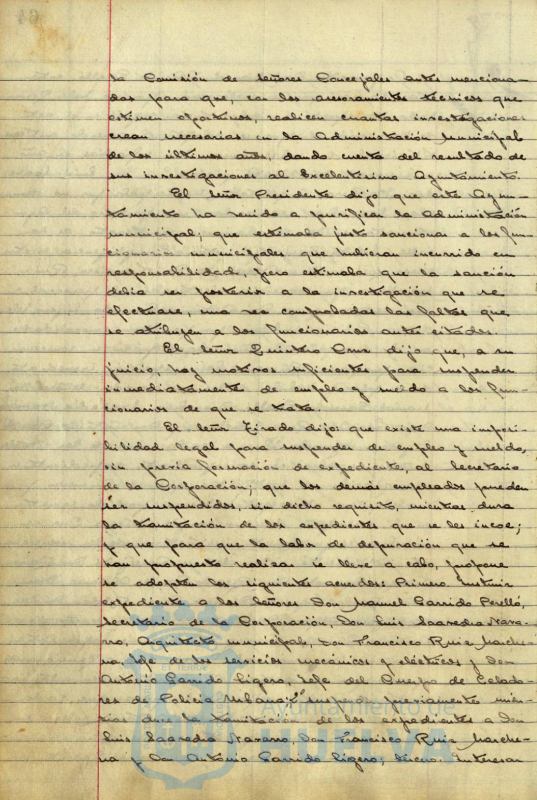 la Comisión de Señores Concejales antes menciona-
dos para que, con los asesoramientos técnicos que
estimen oportunos, realicen cuantas investigaciones
crean necesarias en la Administración Municipal
de los últimos años, dando cuenta del resultado de
sus investigaciones al Excelentísimo Ayuntamiento.
El Señor Presidente dijo que este Ayun-
tamiento ha venido a purificar la Administración
municipal; que estimaba justo sancionar a los fun-
cionarios municipales que hubieran incurrido en
responsabilidad, pero estimaba que la sanción
debía ser posterior a la investigación que se
efectuase, una vez comprobadas las faltas que
se atribuyen a los funcionarios antes citados.
El Señor Quintero Cruz dijo que, a su
juicio, hay motivos suficientes para suspender
inmediatamente de empleo y sueldo a los fun-
cionarios de que se trata.
El Señor Tirado dijo: que existe una imposi-
bilidad legal para suspender de empleo y sueldo,
sin previa formación de expediente, al Secretario
de la Corporación; que los demás empleados pueden
ser suspendidos, sin dicho requisito, mientras dura
la tramitación de los expedientes que se les incoe;
y que para que la labor de depuración que se
han propuesto realizar se lleve a cabo, propone
se adopten los siguientes acuerdos: Primero. Instruir
expediente a los Señores Don Manuel Garrido Perelló,
Secretario de la Corporación, Don Luis Saavedra Nava-
rro, Arquitecto municipal, Don Francisco Ruiz Marche-
na, Jefe de los servicios mecánicos y eléctricos y Don
Antonio Garrido Ligero, Jefe del Cuerpo de Celado-
res de Policía Urbana; previamente mien-
tras dura la tramitación de los expedientes a Don
Luis Saavedra Navarro, Don Francisco Ruiz Marche-
na y Don Antonio Garrido Ligero; Interesar
Ayuntamiento de
HUELVA